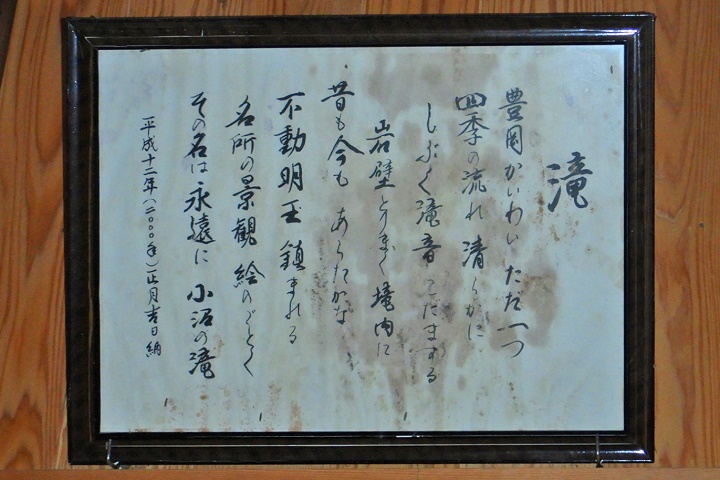 滝
豊岡かいわい ただ一つ
四季の流れ 清らかに
しぶく滝音 こだまする
岩壁とりまく 境内に
昔も今も あらたかな
不動明王 鎮まれる
名所の景観 絵のごとく
その名は永遠に 小沼の滝
平成十二年(二〇〇〇年)正月吉日納